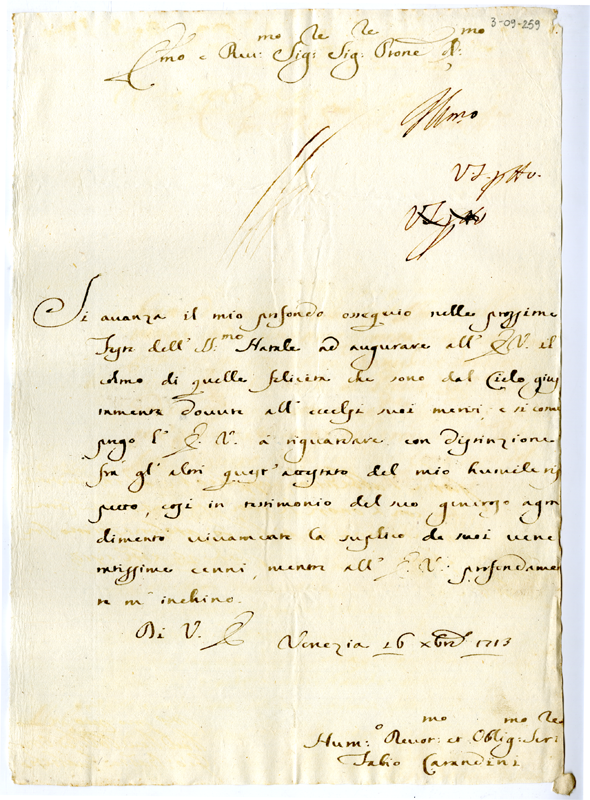 3-09-259
Emo e Reu:mo Sig:re Sig:re Prone C:mo
Illmo
V. S. 
Si auanza il mio profondo ossequio nelle prossime
Feste dell' SS.mo Natale ad augurare all' E. V. il
colmo di quelle felicità che sono dal Cielo gius
tamente douute all' eccelsi suoi meriti, e si come
prego l' E. V. à riguardare con distinzione
fra gl' altri quest' attestato del mio humile ris
petto, cosi in testimonio del suo generoso agra
dimento viuamente la suplico de suoi vene
ratissimi cenni, mentre all' E. V. profondamen
te m' inchino.
Di V. E.
Venezia 16 xbre 1713
Hum:o Reuor:mo et Oblig:mo Ser:re
Fabio Carandini